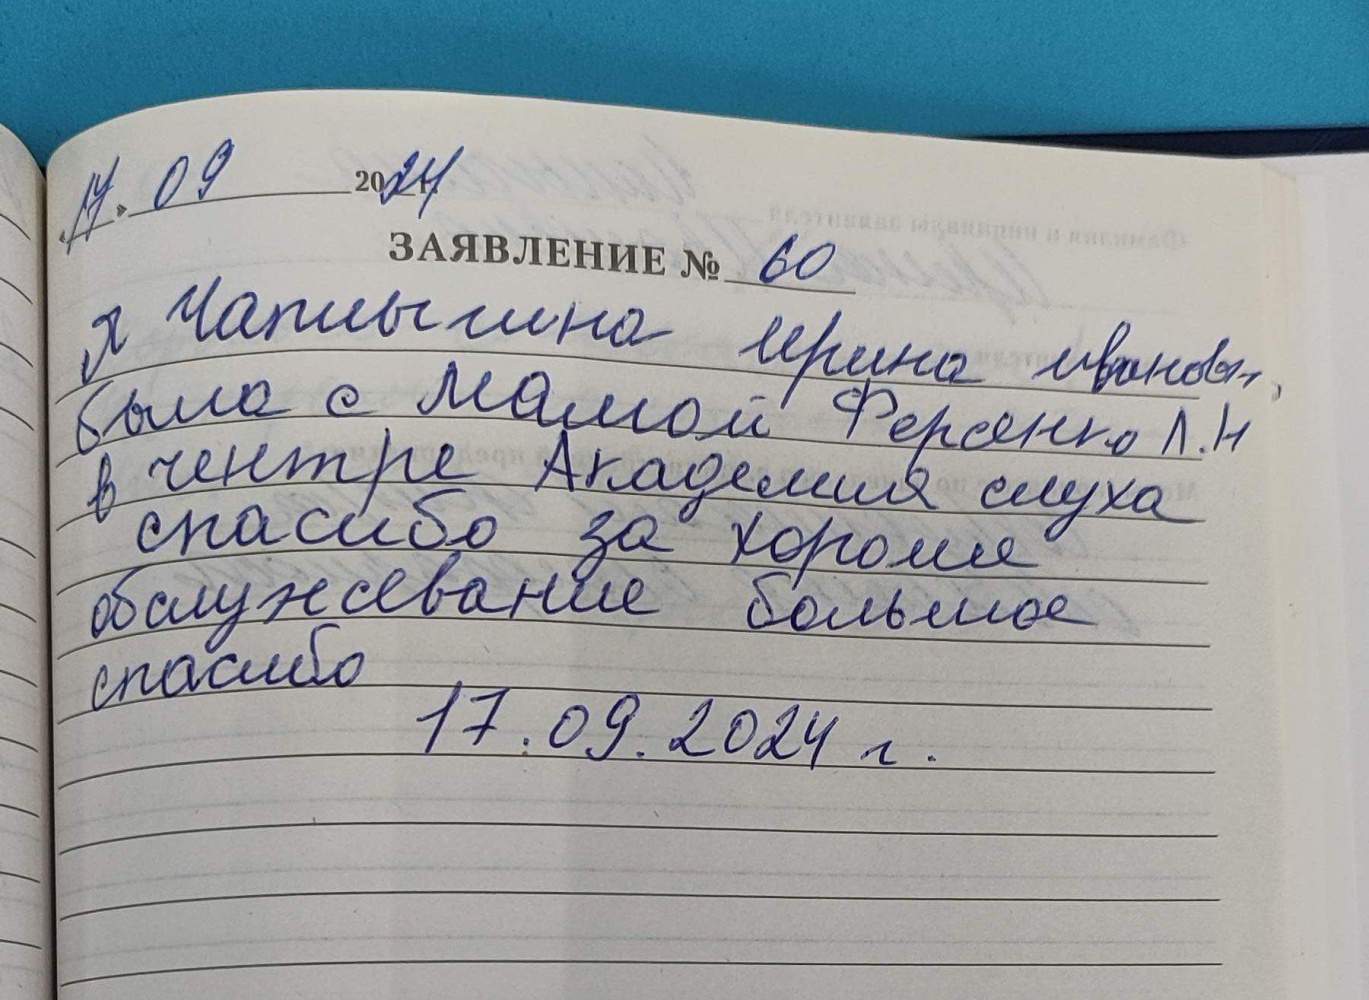 «17.» 09 2024 г.
ЗАЯВЛЕНИЕ № 60
я Чаплыгина Ирина Ивановн,
была с Мамой Ферсенко Л.Н
в центре Академия слуха
спасибо за хороше
обслужевание большое
спасибо
17.09.2024 г.